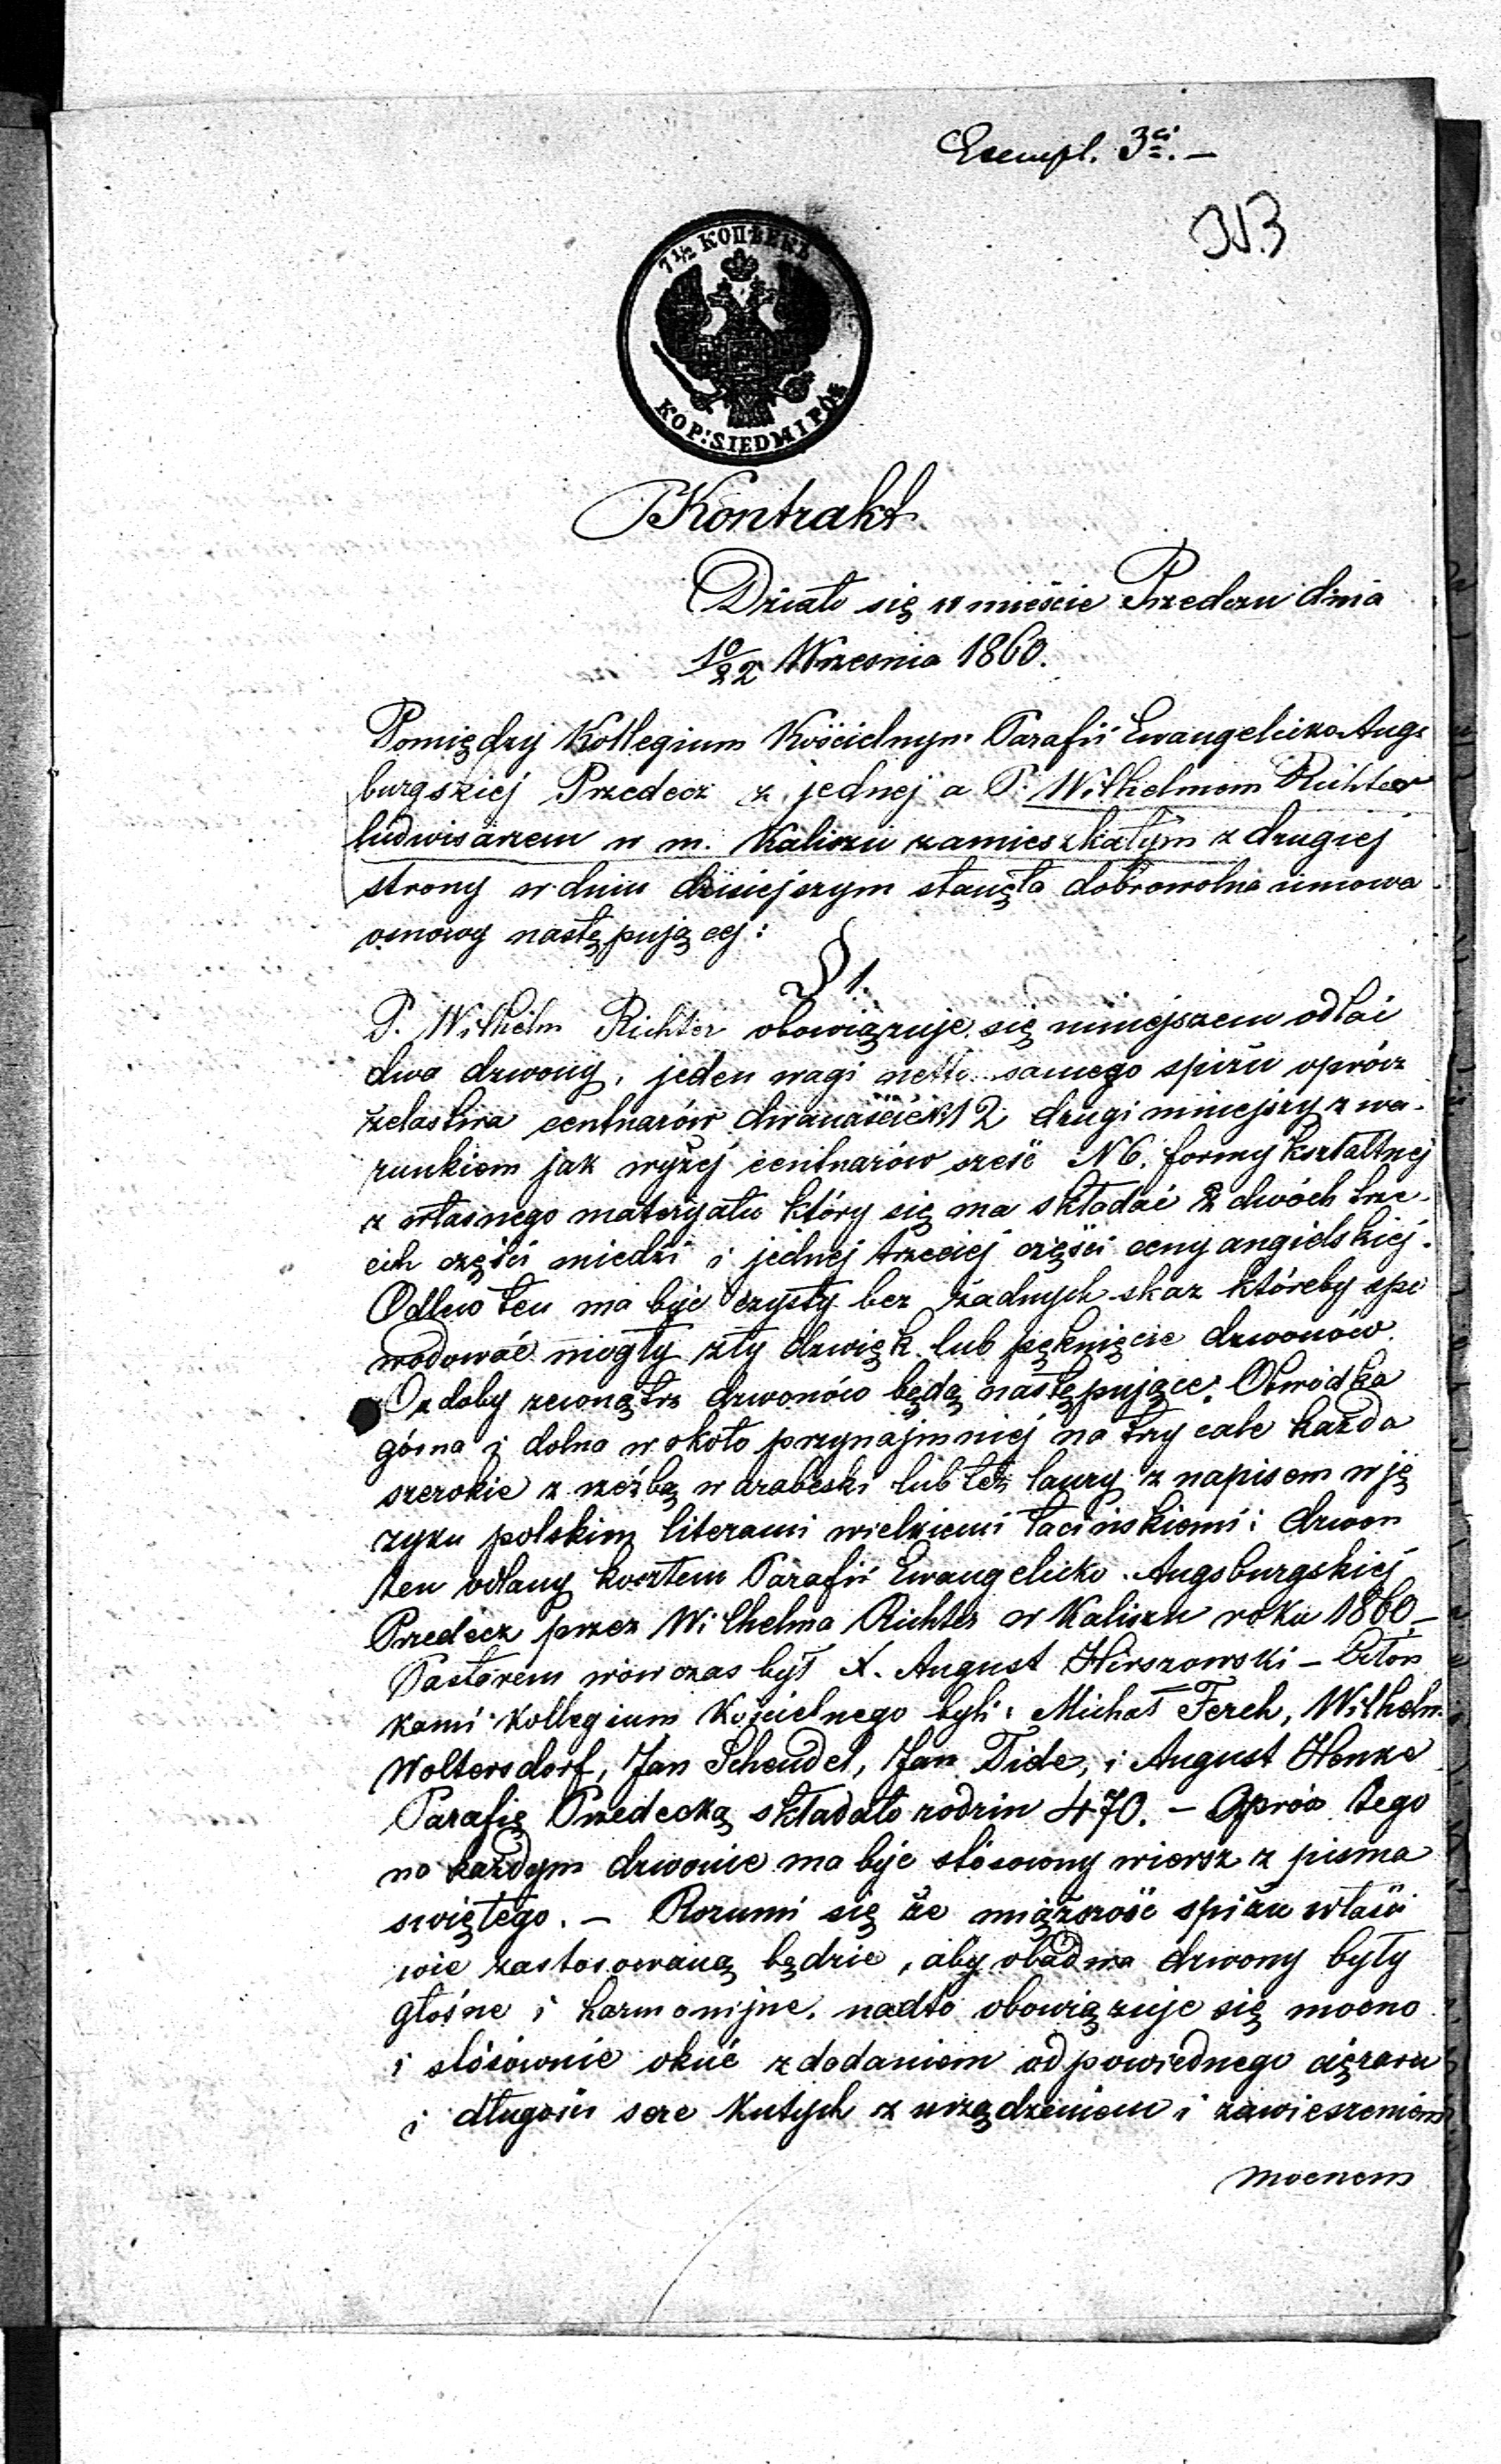 Exempl. 3ci. —
N3
7 1/2 КОПѢЕКЪ
KOP: SIEDM I PÓŁ
Kontrakt
Działo się w mieście Przedczu dnia
10/22 Wrzesnia 1860.
Pomiędzy Kollegium Kościelnym Parafii Ewangelicko Augs
burgskiej Przedecz z jednej a P. Wilhelmem Richter
ludwisarzem w m. Kaliszu zamieszkałym z drugiej
strony w dniu dzisiejszym stanęła dobrowolna umowa
osnowy następującej:
§ 1.
P. Wilhelm Richter obowiązuje się niniejszem odlać
dwa dzwony, jeden wagi netto samego spiżu oprócz
żelastwa centnarów dwanaście N12 drugi mniejszy z wa-
runkiem jak wyżej centnarów sześć N6. formy kształtnej
z własnego materyału który się ma składać z dwóch trze-
cich części miedzi i jednej trzeciej części cyny angielskiej.
Odlew ten ma być czysty bez żadnych skaz któreby spo
wodować mogły zły dzwięk lub pęknięcie dzwonów.
Ozdoby zewnątrz dzwonów będą następujące: Obwódka
górna i dolna w około przynajmniej na trzy cale każda
szerokie z rzeźbą w arabeski lub też laury z napisem w ję
zyku polskim literami wielkiemi łacińskiemi: dzwon
ten odlany kosztem Parafii Ewangelicko-Augsburgskiej
Przedecz przez Wilhelma Richter w Kaliszu roku 1860 —
Pastorem wówczas był X. August Hirszowski — Człon
kami Kollegium Kościelnego byli: Michał Ferch, Wilhelm
Woltersdorf, Jan Scheudel, Jan Tide, i August Henke
Parafię Przedecką składało rodzin 470. — Oprócz tego
na każdym dzwonie ma być stósowny wiersz z pisma
swiętego. — Rozumi się że miąższość spiżu właści
wie zastosowaną będzie, aby obadwa dzwony były
głośne i harmonijne. nadto obowiązuje się mocno
i stósownie okuć z dodaniem odpowiednego ciężaru
i długości serc kutych z urządzeniem i zawieszeniem
mocnem